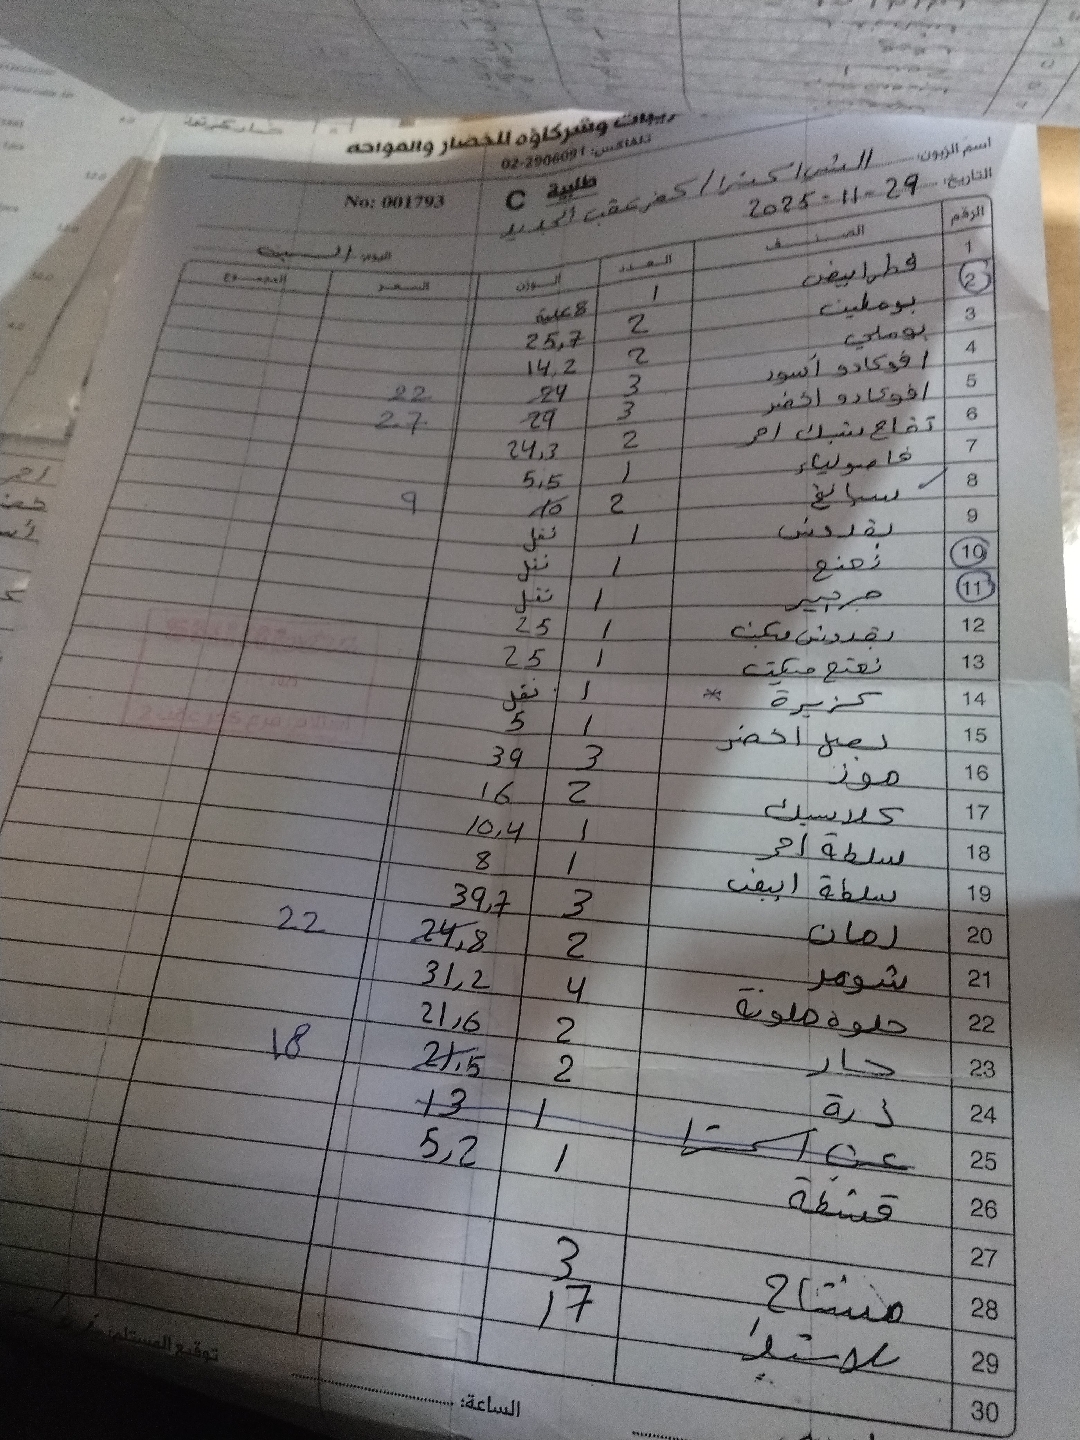 وشركاؤه للخضار والفواكه
تلفاكس: 02-2906091
طلبية C
No: 001793
اسم الزبون: / كفر عقب الجديد
التاريخ: 29-11-2025
اليوم: السبت
الرقم الصنف العدد الوزن السعر المجموع
1 فطر ابيض 1 8 علبة
2 بوملين 2 25,7
3 بوملي 2 14,2
4 افوكادو أسود 3 24 22
5 افوكادو اخضر 3 29 27
6 تفاح احمر 2 24,3
7 فاصولياء 1 5,5
8 سبانخ 2 10 9
9 بقدونس 1 نقل
10 نعنع 1 نقل
11 جرجير 1 نقل
12 بقدونس مكبت 1 25
13 نعنع مكبت 1 25
14 كزبرة * 1 نقل
15 بصل اخضر 1 5
16 موز 3 39
17 كلاسيك 2 16
18 سلطة احمر 1 10,4
19 سلطة ابيض 1 8
20 رمان 3 39,7
21 شومر 2 24,8 22
22 حلوة ملونة 4 31,2
23 حار 2 21,6
24 ذرة 2 21,5 18
25 عنب اكسترا 1 13
26 قشطة 1 5,2
27
28 مشتاح 3
29 17
30
توقيع المستلم:
الساعة: